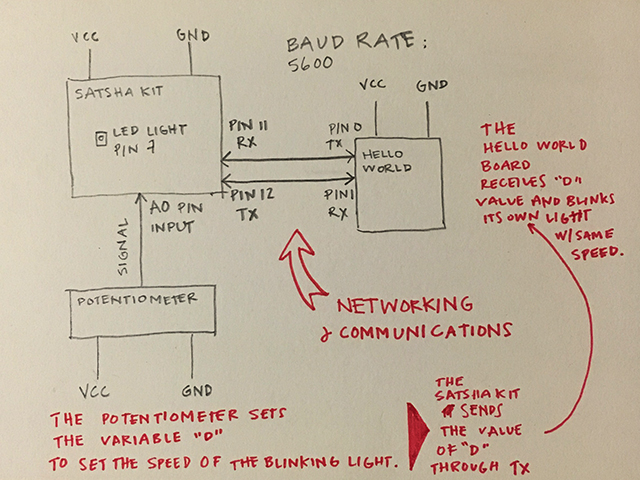 VCC
GND
BAUD RATE:
5600
SATSHA KIT
LED LIGHT
PIN 7
PIN 11
RX
PIN 0
TX
VCC
GND
HELLO
WORLD
PIN 12
TX
PIN 1
RX
A0 PIN
INPUT
SIGNAL
POTENTIOMETER
VCC
GND
THE
HELLO WORLD
BOARD
RECEIVES "D"
VALUE AND BLINKS
ITS OWN LIGHT
W/SAME
SPEED.
NETWORKING
& COMMUNICATIONS
THE POTENTIOMETER SETS
THE VARIABLE "D"
TO SET THE SPEED OF THE BLINKING LIGHT.
THE
SATSHAKIT
SENDS
THE VALUE
OF "D"
THROUGH TX